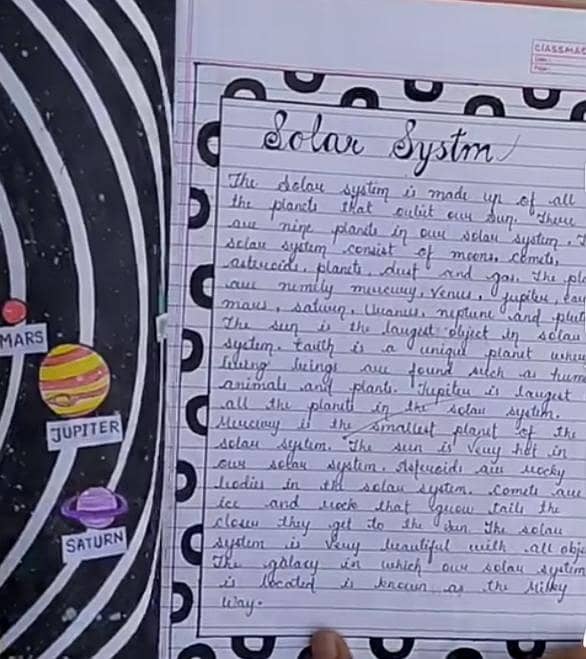 CLASSMATE
Date :
Page :
Solar Systm
The Solar system is made up of all
the planets that orbit our Sun. There
are nine planets in our solar system. T
solar system consist of moons, comets,
asteroids, planets, dust and gas. The pl
are nemily mercury, Venus, Jupiter, ea
mars, saturn, Uranus, neptune and plut
The sun is the largest object in solar
system. Earth is a unique planet wher
living beings are found such as hum
animals and plants. Jupiter is largest
all the planets in the solar system.
Mercury is the smallest planet of the
solar system. The sun is very hot in
our solar system. Asteroids are rocky
bodies in the solar system. Comets are
ice and rock that grow tails the
closer they get to the Sun. The solar
system is very beautiful with all obje
The galaxy in which our solar system
is located is known as the Milky
Way.
MARS
JUPITER
SATURN